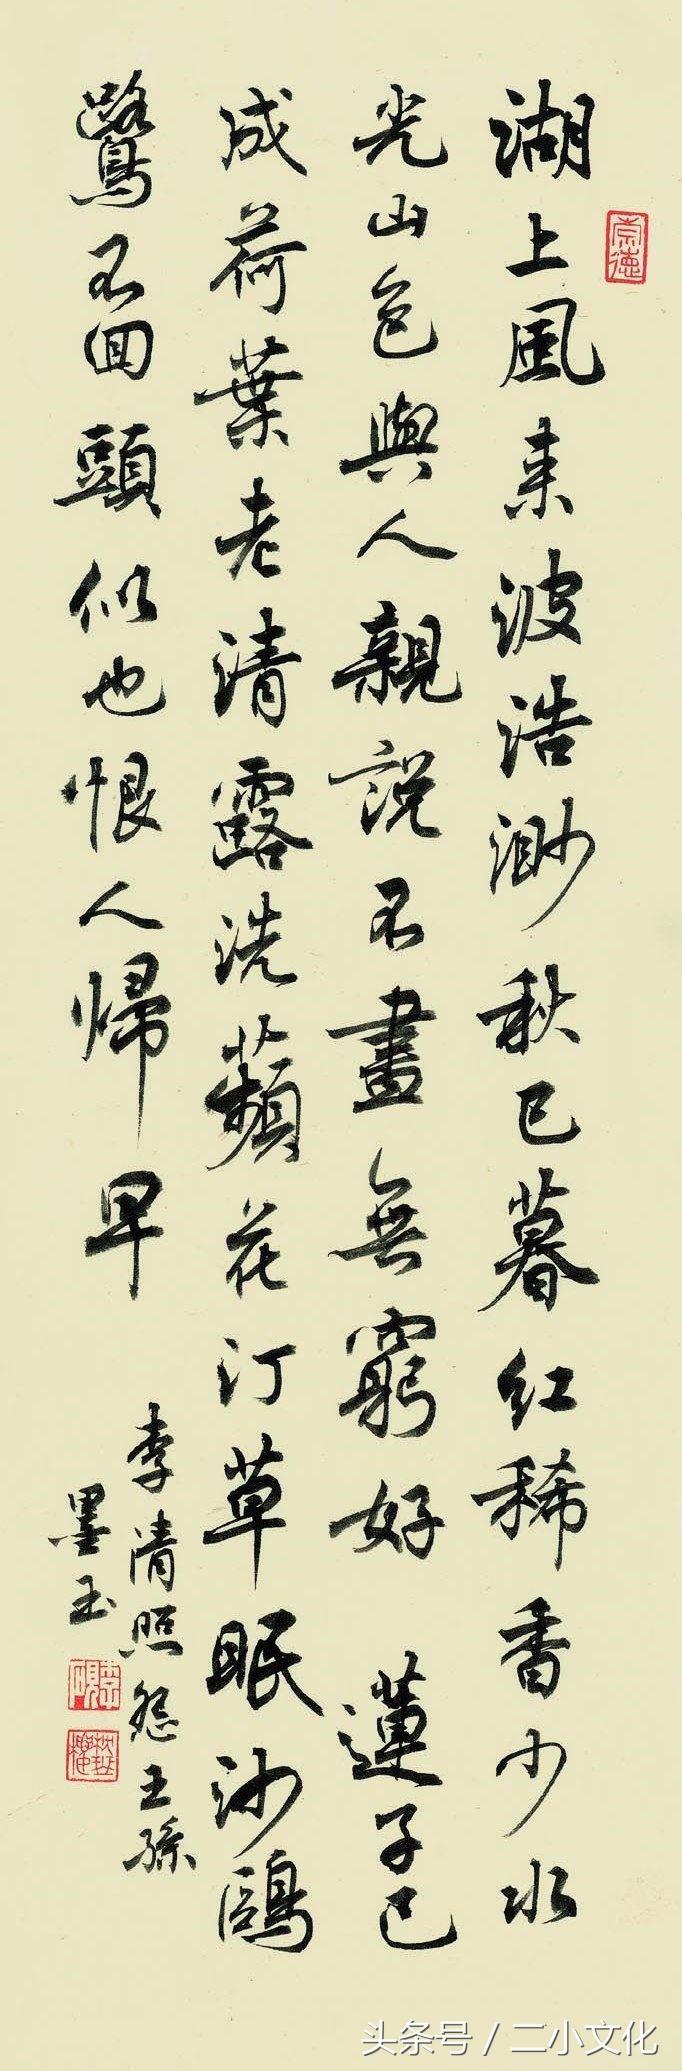 湖上風来波浩渺秋已暮红稀香少水
光山色與人親説不盡無窮好 蓮子已
成荷葉老清露洗蘋花汀草眠沙鷗
鷺不回頭似也恨人帰早
李清照怨王孫
墨玉
崇德
头条号 / 二小文化